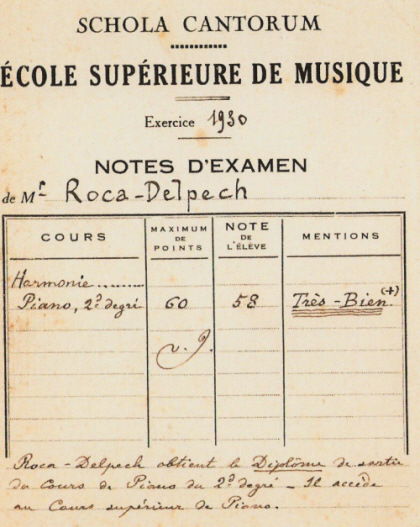 SCHOLA CANTORUM
ÉCOLE SUPÉRIEURE DE MUSIQUE
Exercice 1930
NOTES D'EXAMEN
de Mr Roca-Delpech
COURS
MAXIMUM
DE
POINTS
NOTE
DE
L'ÉLÈVE
MENTIONS
Harmonie.........
Piano, 2d degré 60 58 Très-Bien. (+)
v. g.
Roca-Delpech obtient le Diplôme de sortie
du Cours de Piano du 2d degré - Il accède
au Cours supérieur de Piano.